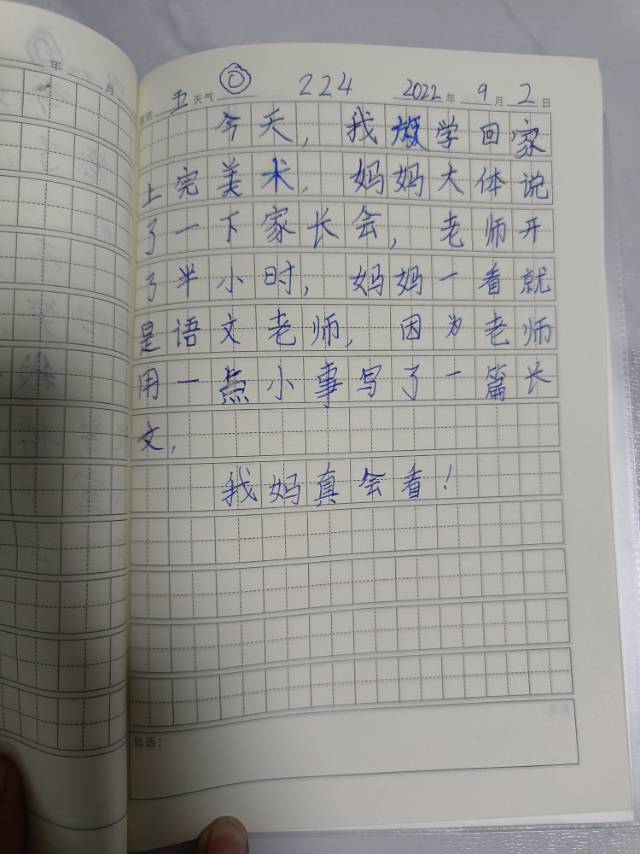 年 月
星期 五 天气 224 2022年 9月 2日
今天，我放学回家
上完美术，妈妈大体说
了一下家长会，老师开
了半小时，妈妈一看就
是语文老师，因为老师
用一点小事写了一篇长
文，
我妈真会看！
批语：